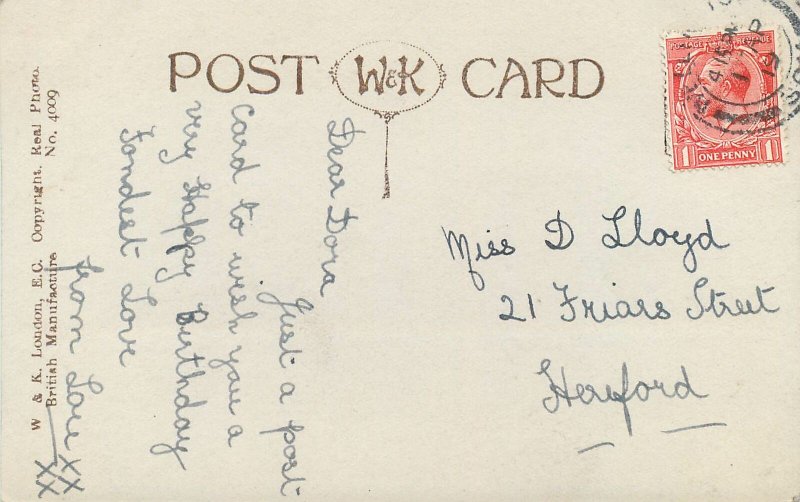 POST W&K CARD
W & K. London, E.C. Copyright. Real Photo.
British Manufacture No. 4009
Dear Dora
Just a post
card to wish you a
very Happy Birthday
Fondest Love
from
XX
XX
Miss D Lloyd
21 Friars Street
Hereford
POSTAGE REVENUE
1 ONE PENNY 1